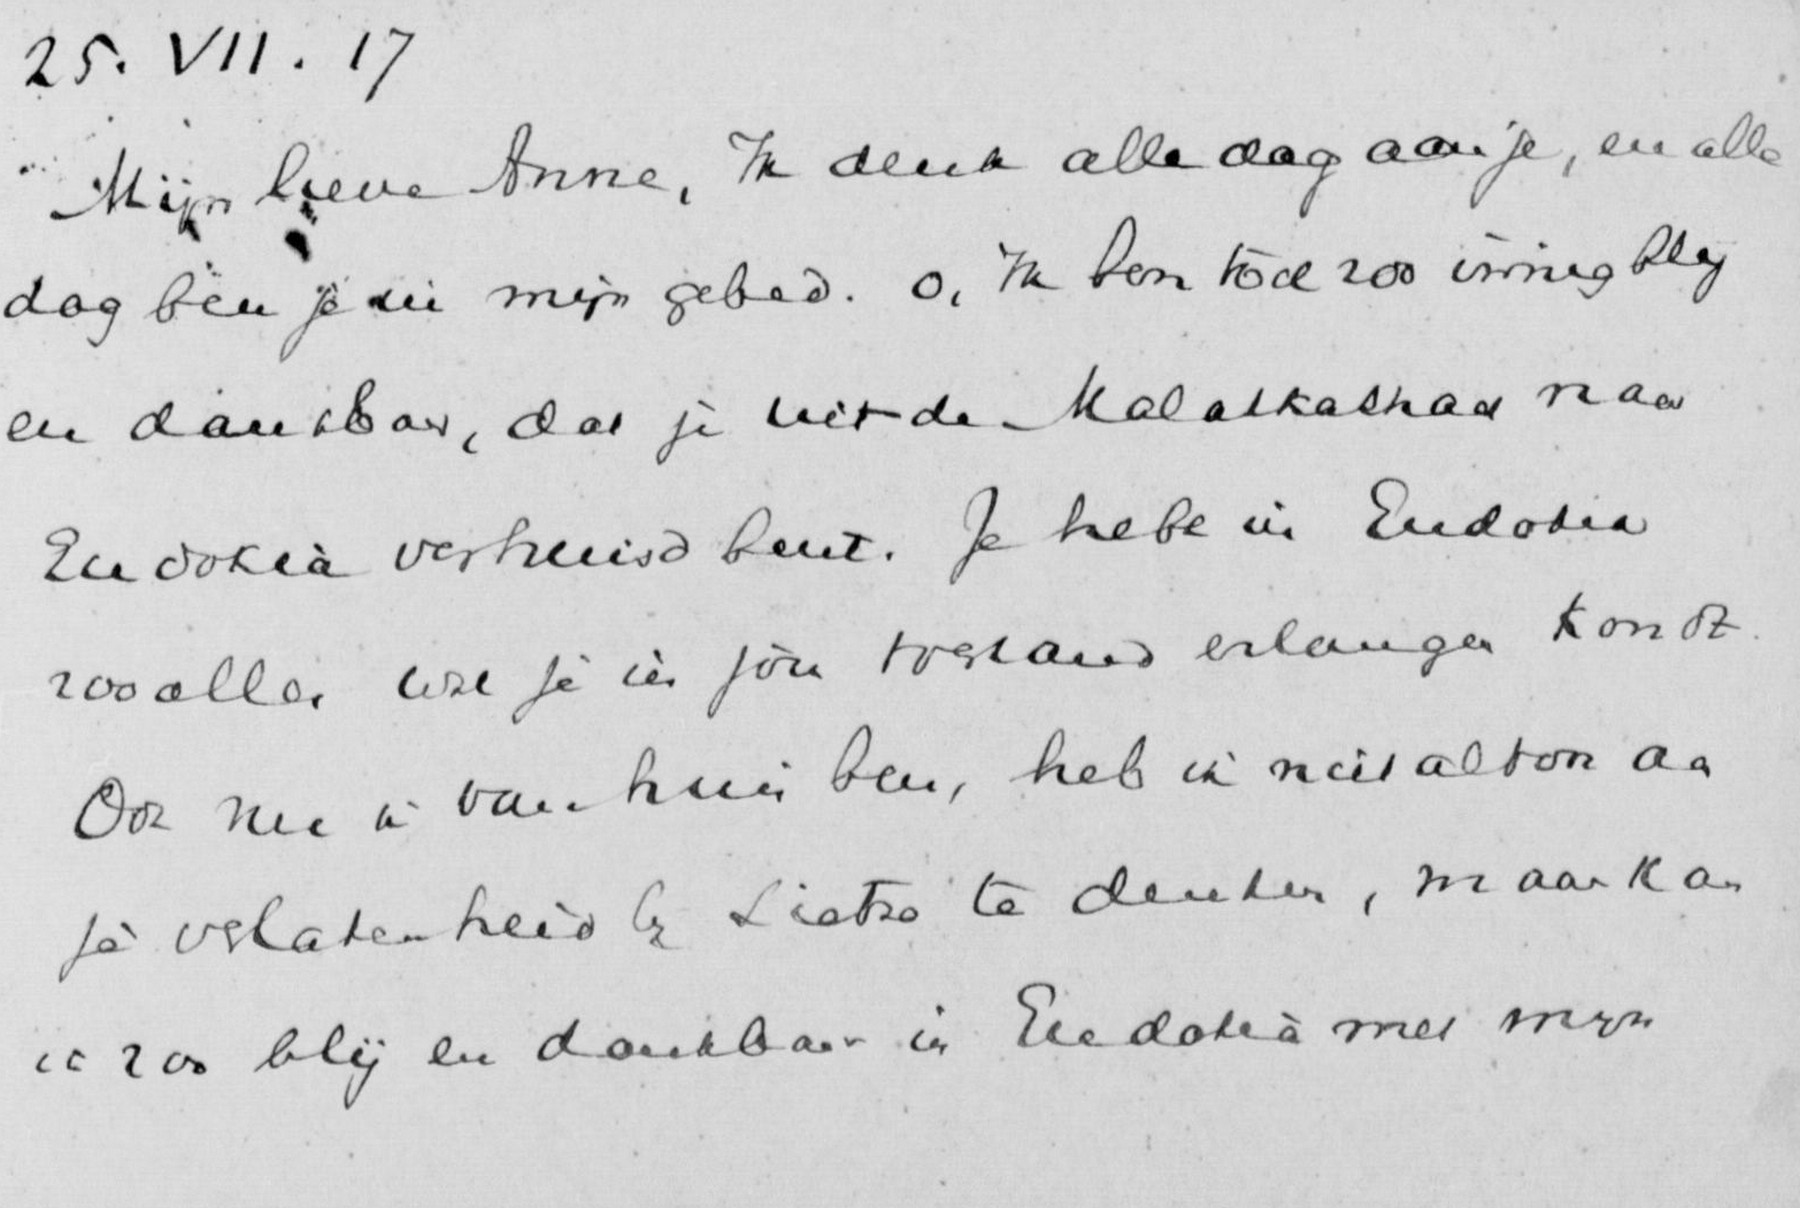 25. VII. 17
Mijn lieve Anne, Ik denk alle dag aan je, en alle
dag ben je in mijn gebed. O, Ik ben toch zoo innig blij
en dankbaar, dat je uit de Malakkastraat naar
Eudokia verhuisd bent. Je hebt in Eudokia
zoo alles wat je in jou toestand erlangen kondt.
Ook nu ik van huis ben, heb ik niet altoos aan
je verlatenheid bij te denken, maar kan
ik zoo blij en dankbaar in Eudokia met mijn